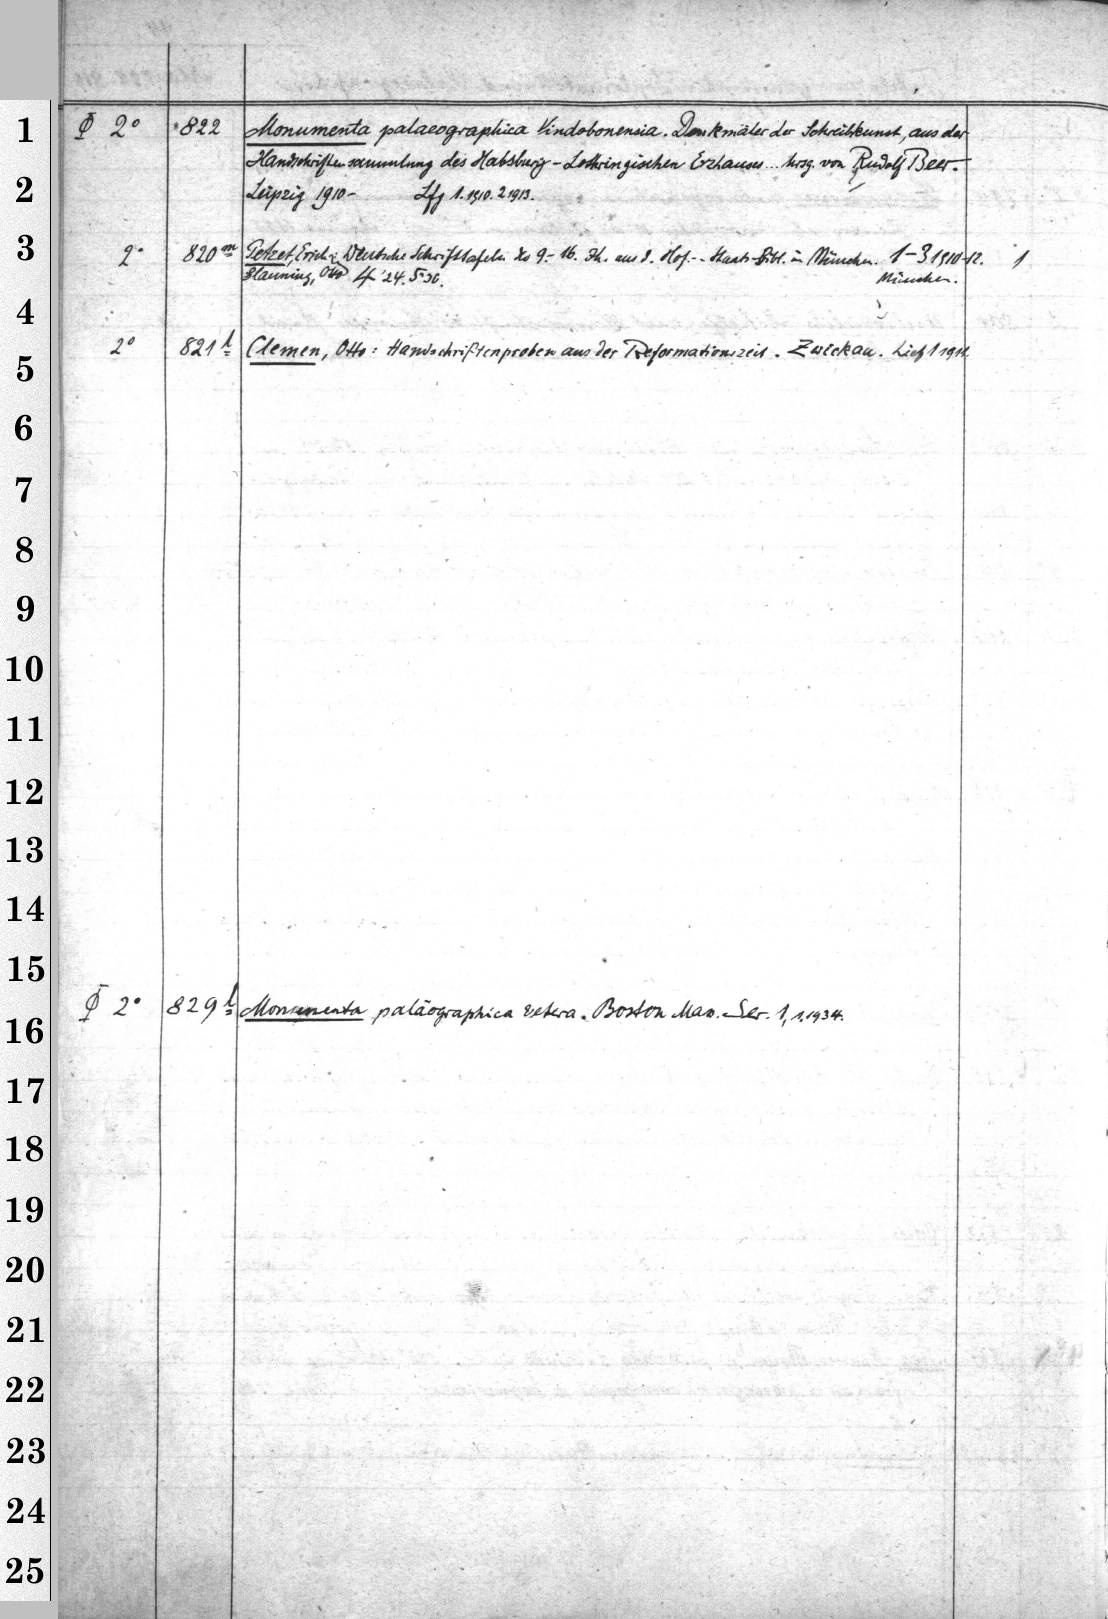 1
Φ 2° 822 Monumenta palaeographica Vindobonensia. Denkmäler der Schreibkunst, aus der
Handschriftensammlung des Habsburg-Lothringischen Erzhauses... hrsg. von Rudolf Beer.
2
Leipzig 1910- Lfg 1. 1910. 2 1913.
3
2° 820 m Petzet, Erich u. Deutsche Schrifttafeln des 9.-16. Jh. aus d. Hof- - Staats-Bibl. in München. 1-3 1910-12. 1
Glauning, Otto 4 '24. 5 '30. München.
4
2° 821 l Clemen, Otto: Handschriftenproben aus der Reformationszeit. Zwickau. Lief 1 1911.
5
6
7
8
9
10
11
12
13
14
15
Φ 2° 829 l Monumenta paläographica vetera. Boston Mass. Ser. 1, 1. 1934.
16
17
18
19
20
21
22
23
24
25